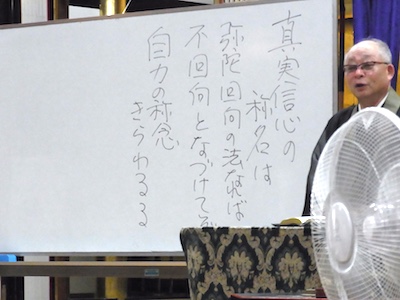 真実信心の
称名は
弥陀回向の法なれば
不回向となづけてぞ
自力の称念
きらわるる